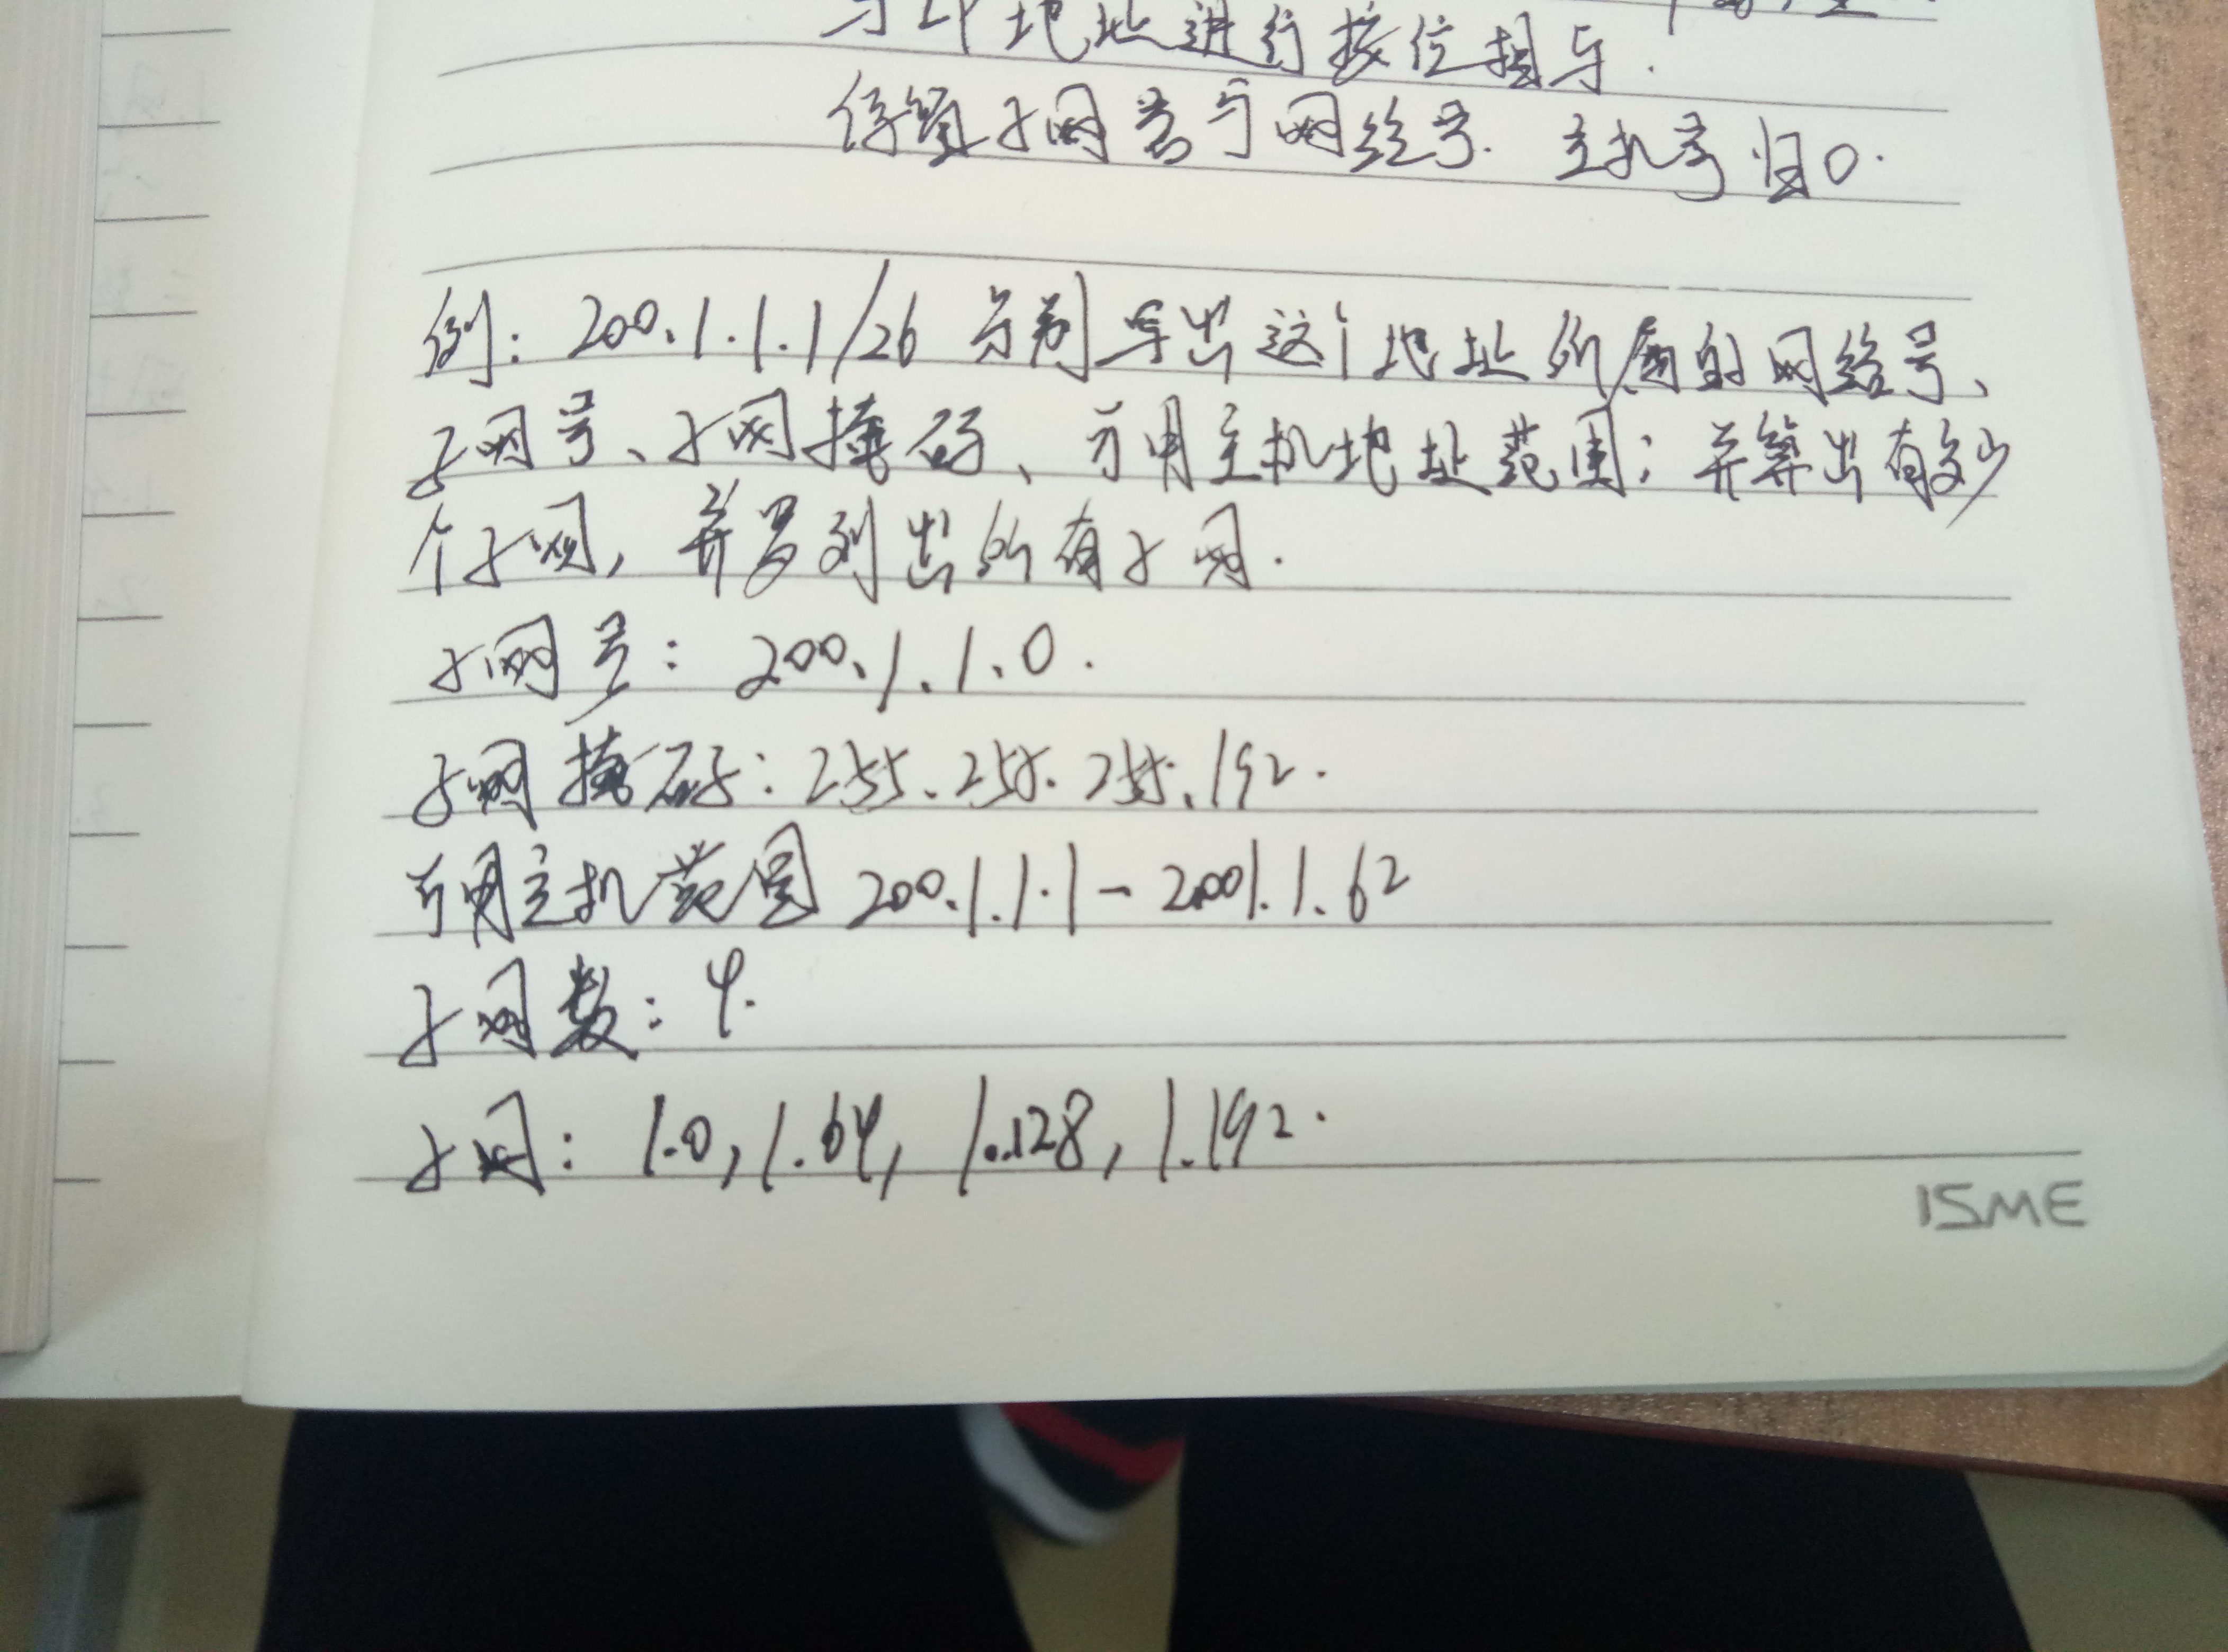 与IP地址进行按位相与.
保留子网号与网络号. 主机号归0.
例: 200.1.1.1/26 分别导出这个地址所属的网络号、
子网号、子网掩码、可用主机地址范围; 并算出有多少
个子网, 并罗列出所有子网.
子网号: 200.1.1.0.
子网掩码: 255.255.255.192.
可用主机范围 200.1.1.1-200.1.1.62
子网数: 4.
子网: 1.0, 1.64, 1.128, 1.192.
ISME